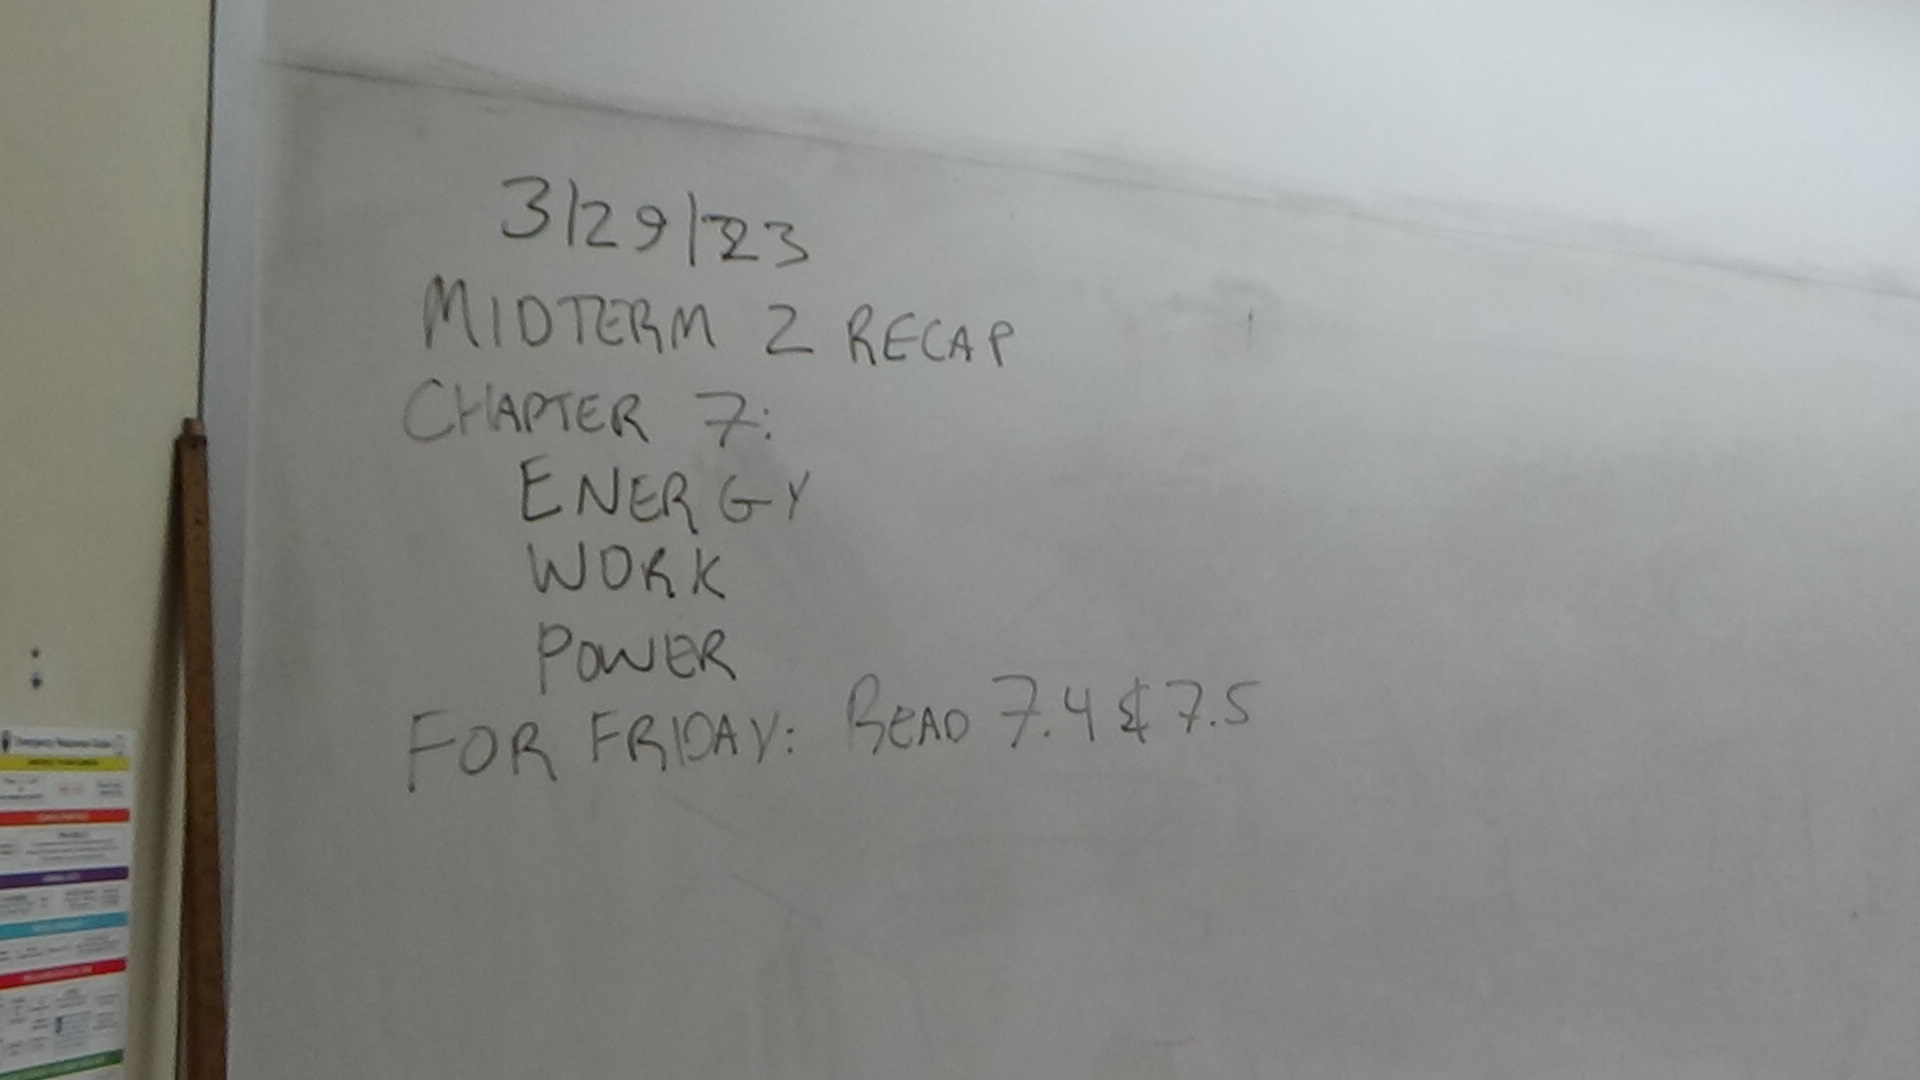 3/29/23
MIDTERM 2 RECAP
CHAPTER 7:
ENERGY
WORK
POWER
FOR FRIDAY: READ 7.4 & 7.5
Emergency Response Guide